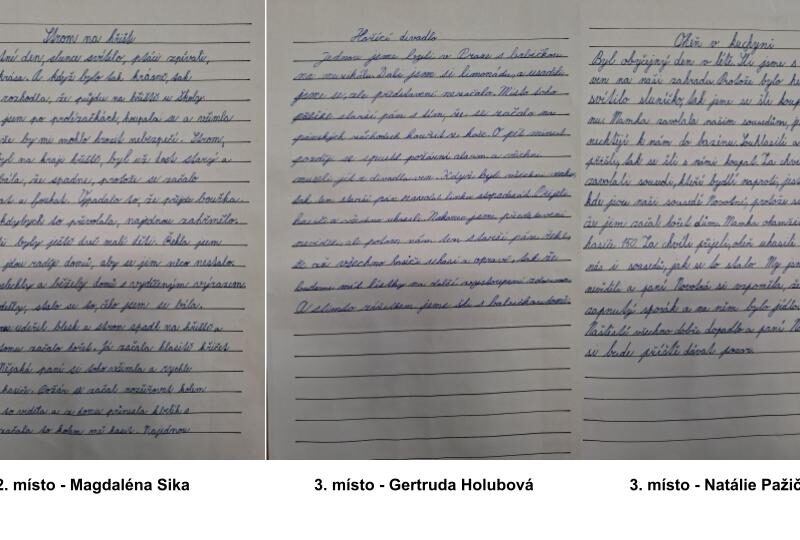 Strom na hřišti
den, slunce svítilo, ptáci zpívali,
krása. A když bylo tak krásně, tak
rozhodla, že půjdu na hřiště u školy
jsem po prolézačkách, koupala se a
že by mi mohlo hrozit nebezpečí. Strom,
byl na kraji hřiště, byl už dost starý a
bála, že spadne, protože se začalo
a foukat. Vypadalo to, že přijde bouřka.
kdybych to přivolala, najednou zahřmělo.
byly ještě dost malé děti. Řekla jsem
jdou raději domů, aby se jim něco nestalo.
a běžely domů s vyděšeným výrazem.
stalo se to, čeho jsem se bála.
udeřil blesk a strom spadl na hřiště a
začalo hořet. Já začala hlasitě křičet
Nějaká paní si toho všimla a rychle
hasiče. Požár se začal rozšiřovat kolem
to viděla a z domu přinesla kbelík s
začala to kolem něj hasit. Najednou
2. místo - Magdaléna Sika
Hořící divadlo
Jednou jsme byli v Praze s babičkou
na muzikálu. Dali jsme si limonádu, a usadili
jsme se, ale představení nezačalo. Místo toho
přišel starší pán s tím, že se začalo na
pánských záchodech kouřit z koše. O pět minut
později se spustil požární alarm a všichni
museli jít z divadla ven. Když byli všichni venku,
tak ten starší pán zavolal linku stopadesát. Přijeli
hasiči a všechno uhasili. Nakonec jsme představení
neviděli, ale potom nám ten starší pán řekl,
že až všechno hasiči uhasí a opraví, tak že
budeme mít lístky na další vystoupení zdarma.
A s tímto zážitkem jsme šli s babičkou domů.
3. místo - Gertruda Holubová
Oheň v kuchyni
Byl obyčejný den v létě. Šli jsme s
ven na naši zahradu. Protože bylo
svítilo sluníčko, tak jsme se šli
Mamka zavolala našim sousedům,
nechtějí k nám do bazénu. Souhlasili a
přišli, tak se šli s námi koupat. Za chvíli
zavolali sousedi, kteří bydlí naproti,
kde jsou naši sousedi Novotní, protože
že jim začal hořet dům. Mamka okamžitě
hasiče 150. Za chvíli přijeli, oheň uhasili
nás i sousedů, jak se to stalo. My jsme
nevěděli a paní Novotná si vzpomněla, že
zapnutý sporák a na něm bylo jídlo.
Naštěstí všechno dobře dopadlo a paní
si bude příště dávat pozor.
3. místo - Natálie Pažič